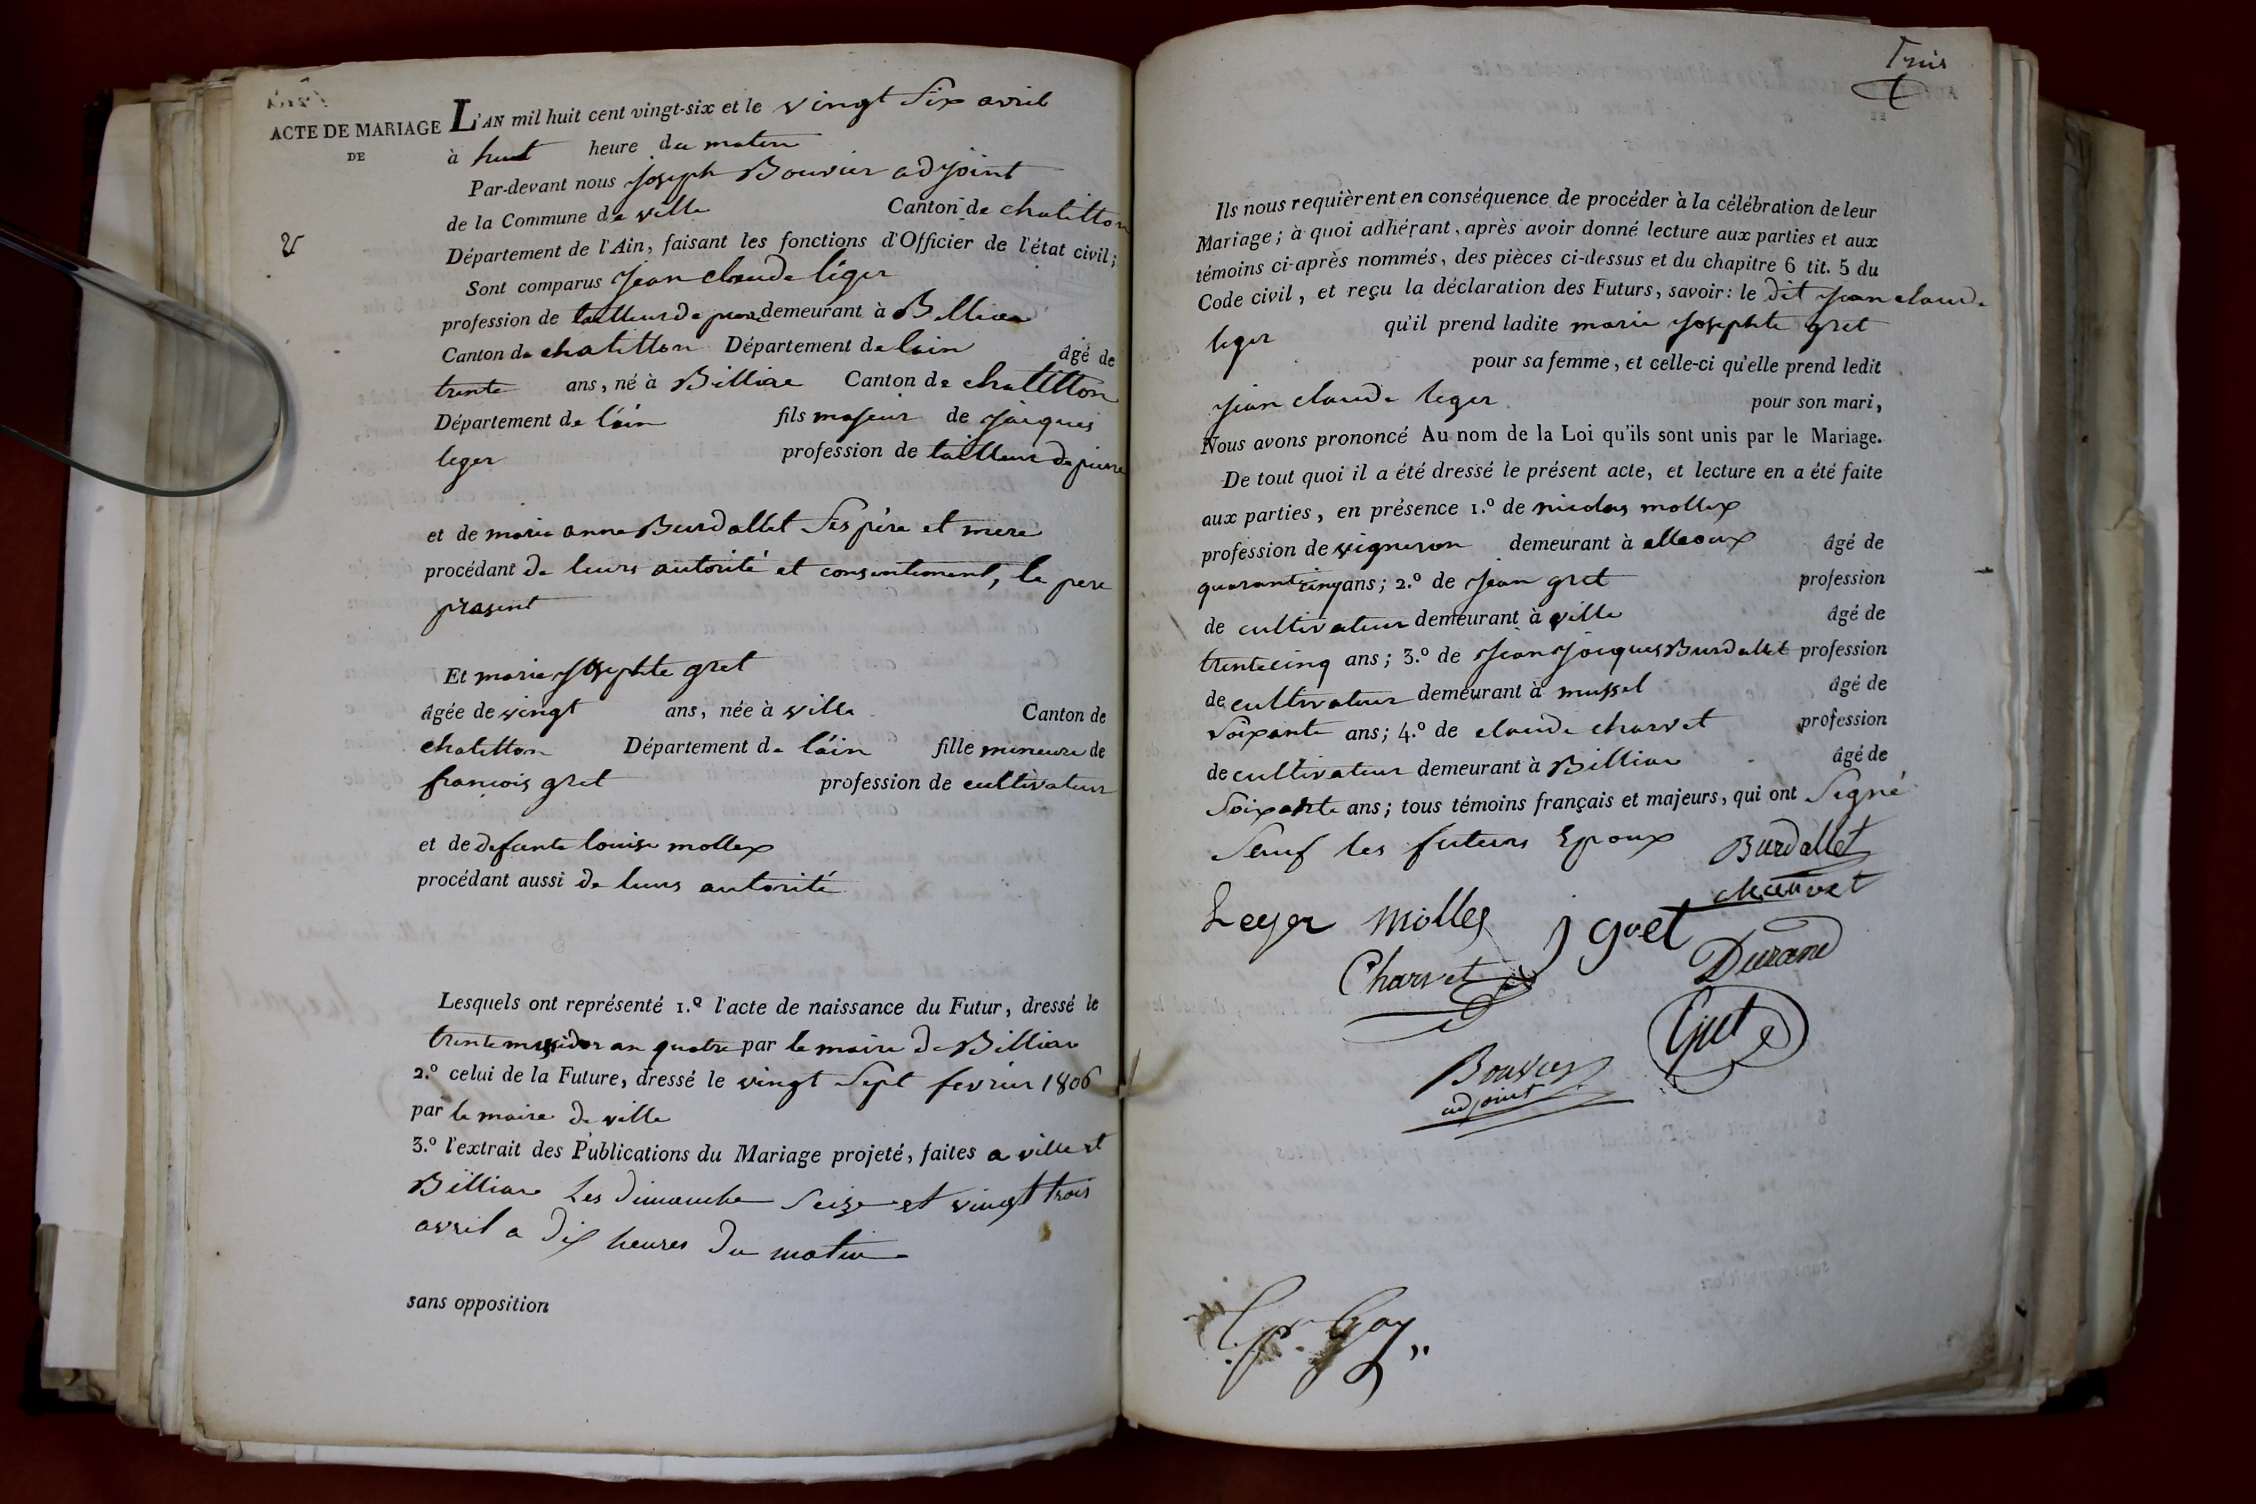 ACTE DE MARIAGE
DE
L'AN mil huit cent vingt-six et le vingt six avril
à huit heure du matin
Par-devant nous joseph Bouvier adjoint
de la Commune de ville Canton de chatillon
Département de l'Ain, faisant les fonctions d'Officier de l'état civil;
Sont comparus jean claude léger
profession de tailleur de pierre demeurant à Billiaz
Canton de chatillon Département de lain âgé de
trente ans, né à Billiaz Canton de chatillon
Département de l'ain fils majeur de jacques
leger profession de tailleur de pierre
et de marie anne Burdallet ses père et mere
procédant de leurs autorité et consentement, le pere
present
Et marie josephte gret
âgée de vingt ans, née à ville Canton de
chatillon Département de l'ain fille mineure de
francois gret profession de cultivateur
et de defunte louise mollex
procédant aussi de leurs autorité
Lesquels ont représenté 1.º l'acte de naissance du Futur, dressé le
trente messidor an quatre par le maire de Billiaz
2.º celui de la Future, dressé le vingt sept fevrier 1806
par le maire de ville
3.º l'extrait des Publications du Mariage projeté, faites a ville et
Billiaz les dimanche seize et vingt trois
avril a dix heures du matin
sans opposition
trois
Ils nous requièrent en conséquence de procéder à la célébration de leur
Mariage; à quoi adhérant, après avoir donné lecture aux parties et aux
témoins ci-après nommés, des pièces ci-dessus et du chapitre 6 tit. 5 du
Code civil, et reçu la déclaration des Futurs, savoir: le dit jean claude
leger qu'il prend ladite marie josephte gret
pour sa femme, et celle-ci qu'elle prend ledit
jean claude leger pour son mari,
Nous avons prononcé Au nom de la Loi qu'ils sont unis par le Mariage.
De tout quoi il a été dressé le présent acte, et lecture en a été faite
aux parties, en présence 1.º de nicolas mollex
profession de vigneron demeurant à âgé de
quarant cinq ans; 2.º de jean gret profession
de cultivateur demeurant à ville âgé de
trente cinq ans; 3.º de jean jacques Burdallet profession
de cultivateur demeurant à mussel âgé de
soixante ans; 4.º de claude charvet profession
de cultivateur demeurant à Billiaz âgé de
soixante ans; tous témoins français et majeurs, qui ont signé
sauf les futurs Epoux Burdallet
Leger Molles J gret charvet
Charvet Durand
Gret
Bouvier
adjoint